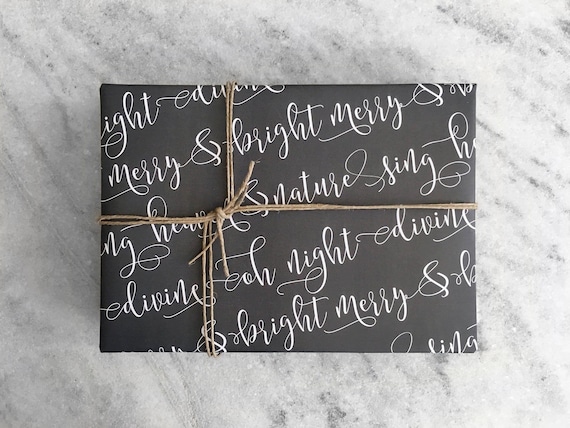 night divine
merry & bright merry &
sing heaven & nature sing
divine oh night divine
& bright merry &
& sing